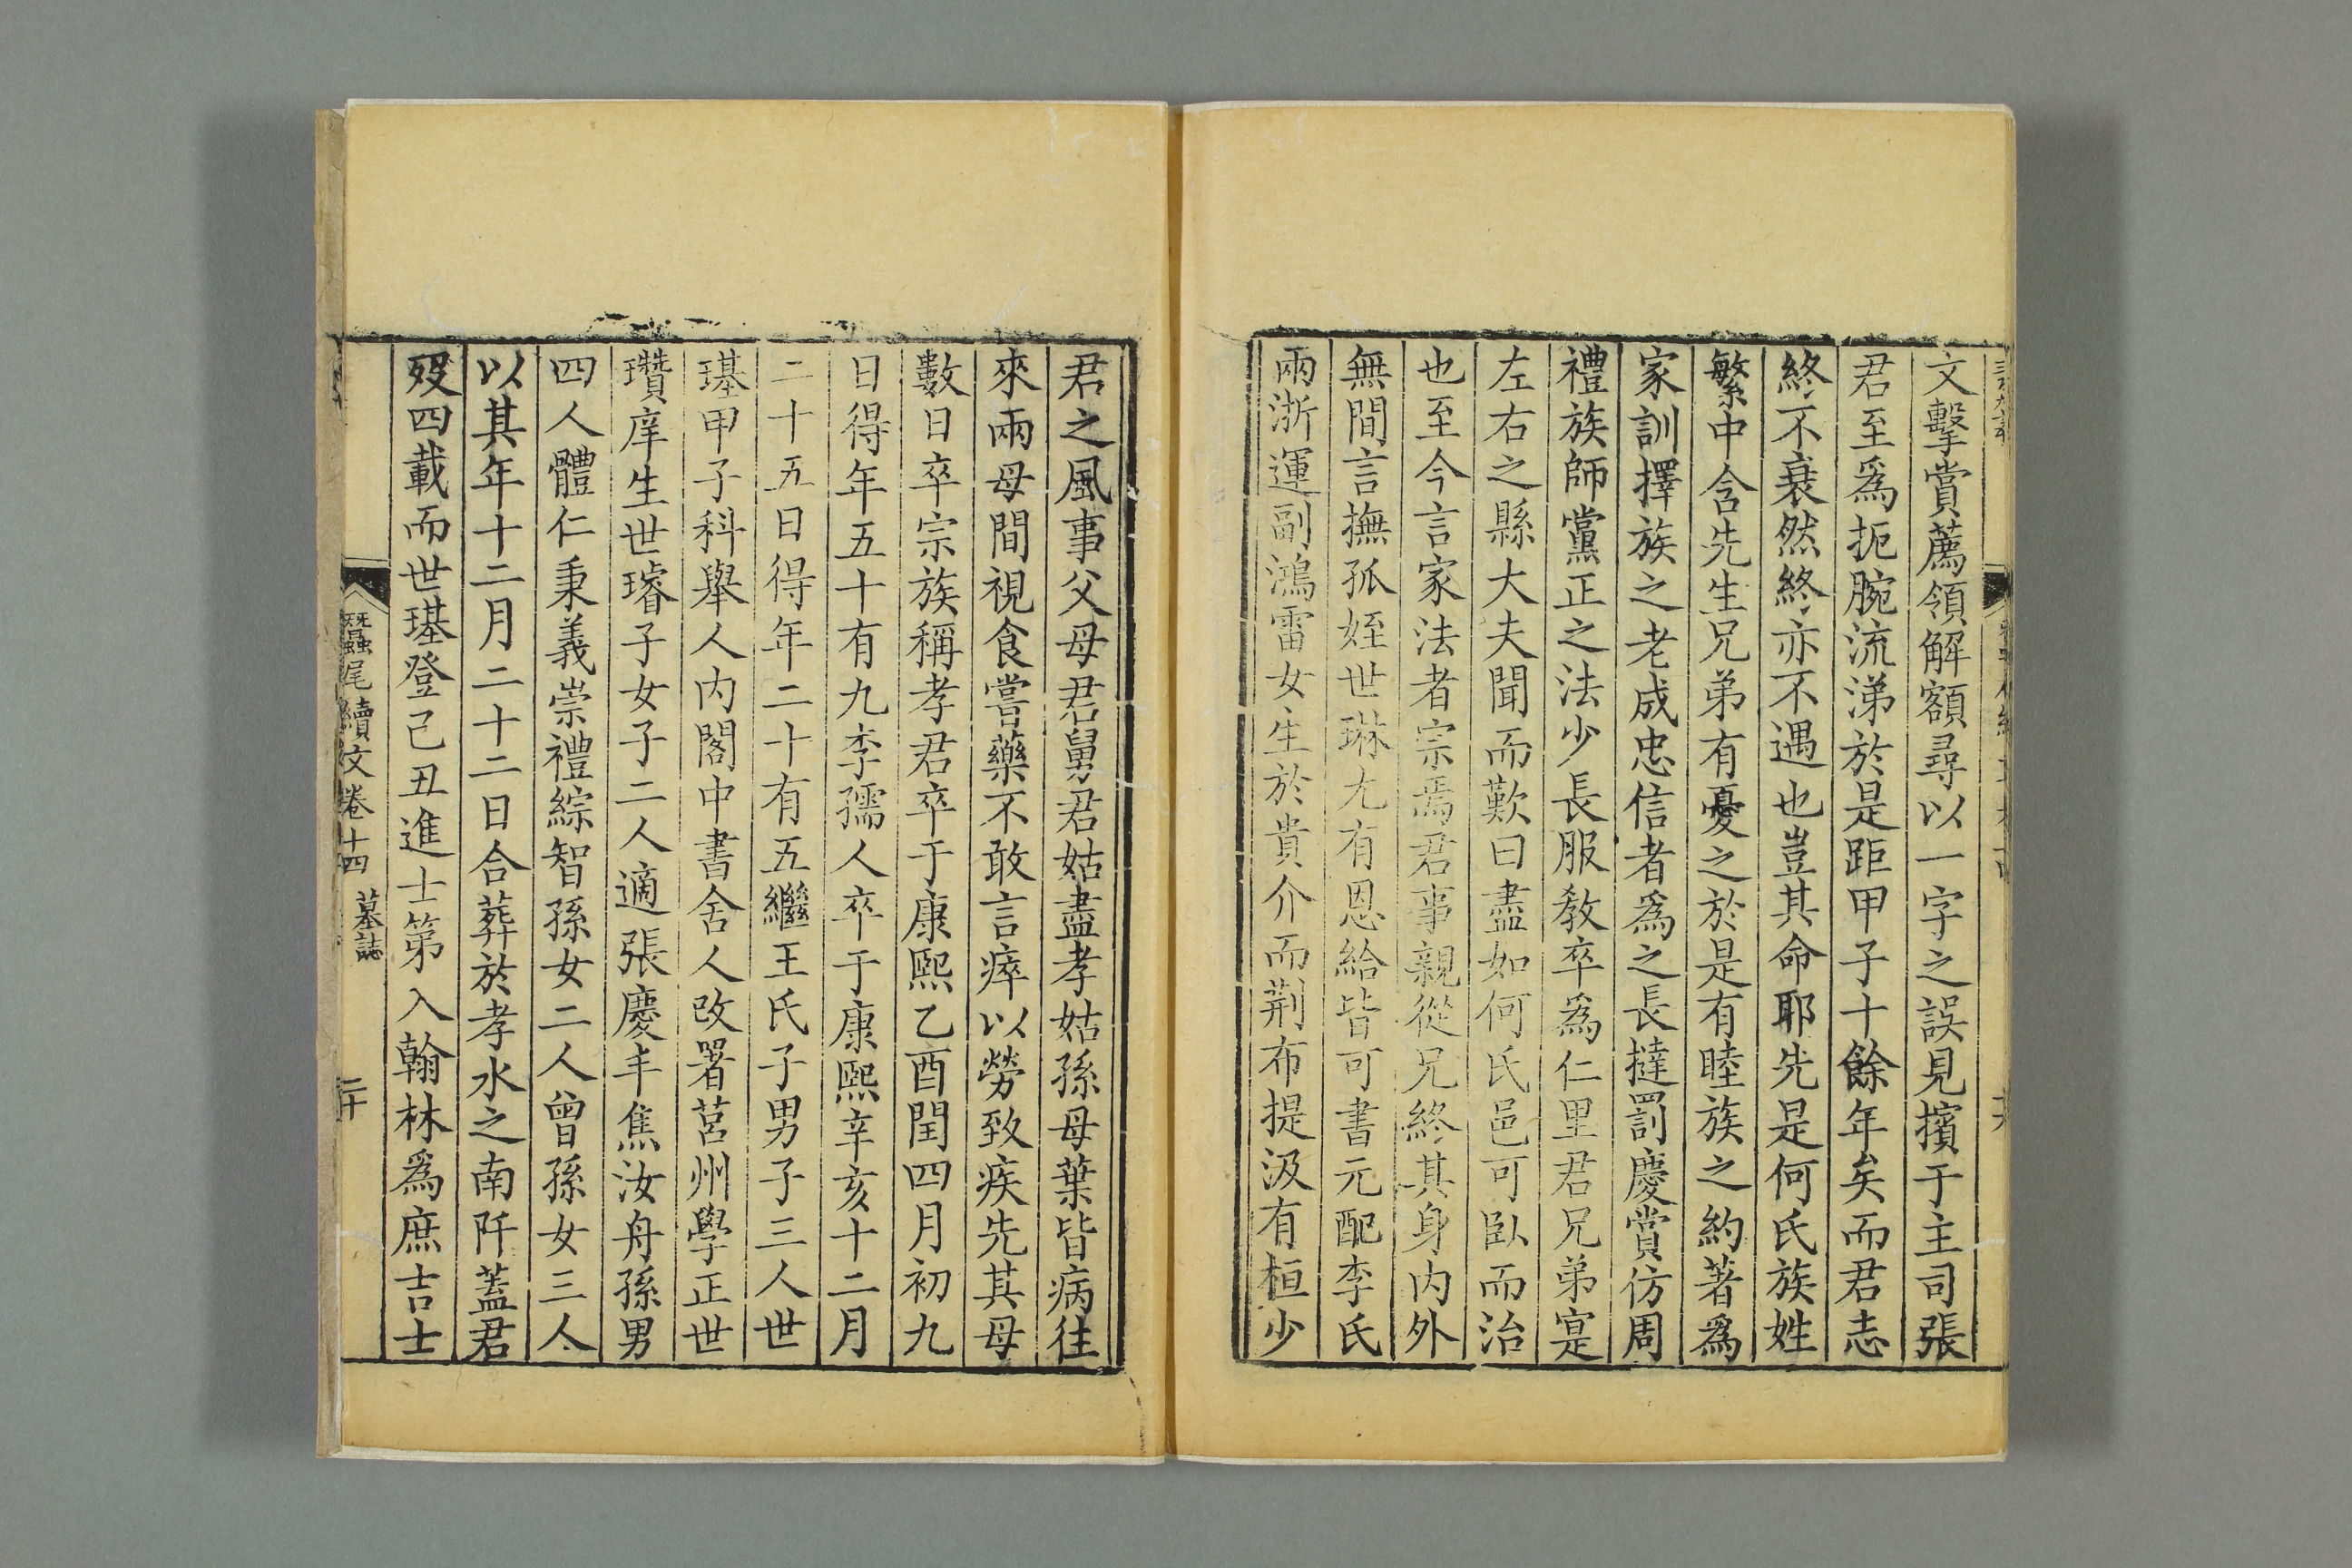 文擊賞薦領解額尋以一字之誤見擯于主司張
君至爲扼腕流涕於是距甲子十餘年矣而君志
終不衰然終亦不遇也豈其命耶先是何氏族姓
繁中含先生兄弟有憂之於是有睦族之約著爲
家訓擇族之老成忠信者爲之長撻罰慶賞仿周
禮族師黨正之法少長服教卒爲仁里君兄弟寔
左右之縣大夫聞而歎曰盡如何氏邑可臥而治
也至今言家法者宗焉君事親從兄終其身內外
無間言撫孤姪世琳尤有恩給皆可書元配李氏
兩浙運副鴻雷女生於貴介而荆布提汲有桓少
君之風事父母君舅君姑盡孝姑孫母葉皆病往
來兩母間視食嘗藥不敢言瘁以勞致疾先其母
數日卒宗族稱孝君卒于康熙乙酉閏四月初九
日得年五十有九李孺人卒于康熙辛亥十二月
二十五日得年二十有五繼王氏子男子三人世
璂甲子科舉人內閣中書舍人改署莒州學正世
瓚庠生世璿子女子二人適張慶丰焦汝舟孫男
四人體仁秉義崇禮綜智孫女二人曾孫女三人
以其年十二月二十二日合葬於孝水之南阡蓋君
歿四載而世璂登己丑進士第入翰林爲庶吉士
蠶尾續文卷十四 墓誌 二十